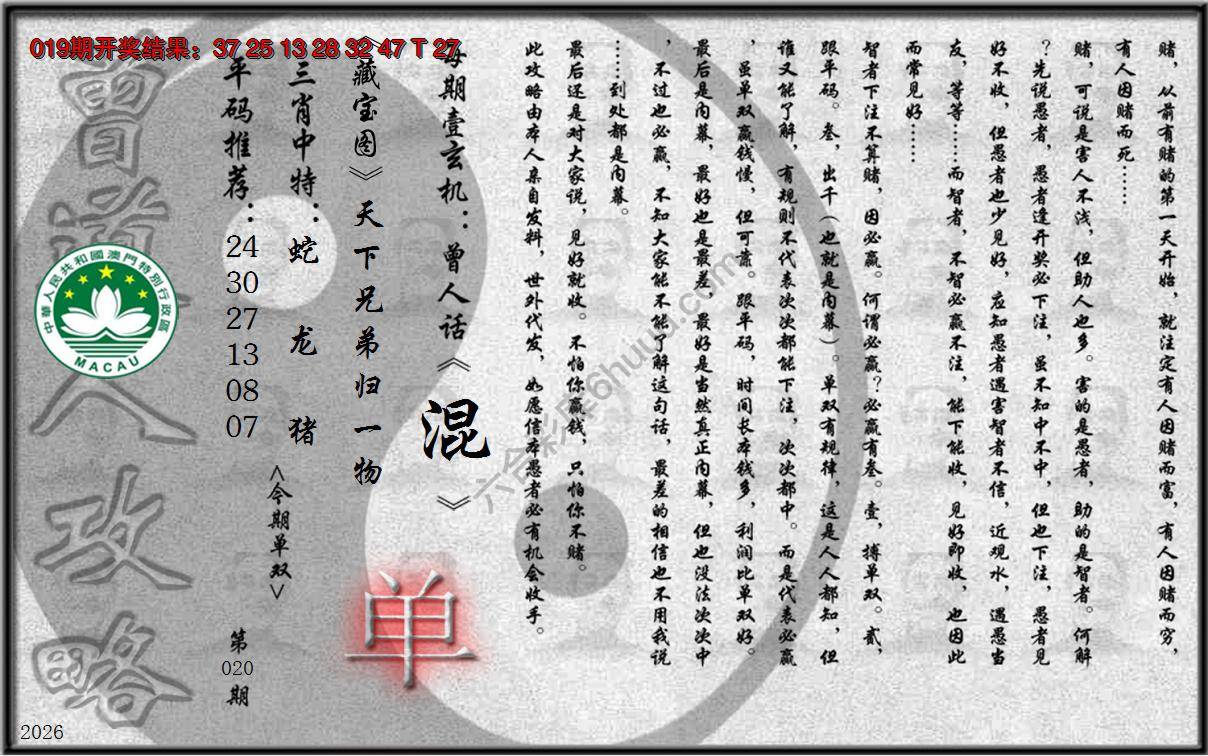 019期开奖结果：37 25 13 28 32 47 T 27
赌，从前有赌的第一天开始，就注定有人因赌而富，有人因赌而穷，
有人因赌而死……
赌，可说是害人不浅，但助人也多。害的是愚者，助的是智者。何解
？先说愚者，愚者逢开奖必下注，虽不知中不中，但也下注，愚者见
好不收，但愚者也少见好，应知愚者遇害智者不信，近观水，遇愚当
友，等等……而智者，不智必赢不注，能下能收，见好即收，也因此
而常见好……
智者下注不算赌，因必赢。何谓必赢？必赢有叁。壹，搏单双。贰，
跟平码。叁，出千（也就是内幕）。单双有规律，这是人人都知，但
谁又能了解，有规则不代表次次都能下注，次次都中。而是代表必赢
，虽单双赢钱慢，但可靠。跟平码，时间长本钱多，利润比单双好。
最后是内幕，最好也是最差，最好是当然真正内幕，但也没法次次中
，不过也必赢，不知大家能不能了解这句话，最差的相信也不用我说
……到处都是内幕。
最后还是对大家说，见好就收。不怕你赢钱，只怕你不赌。
此攻略由本人亲自发料，世外代发，如愿信本愚者必有机会收手。
每期壹玄机：曾人话《混》
《藏宝图》天下兄弟归一物
单
三肖中特：蛇 龙 猪
<今期单双>
平码推荐：24 30 27 13 08 07
第020期
曾道人攻略
中華人民共和國澳門特別行政區
MACAU
六合彩库6huuu.com
2026